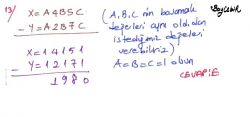 13)
X=A4B5C
- Y=A2B7C
X=14151
- Y=12171
1980
(A,B,C nin basamak
değerleri aynı olduğundan
istediğimiz değerleri
verebiliriz)
A=B=C=1 olsun
CEVAP:E